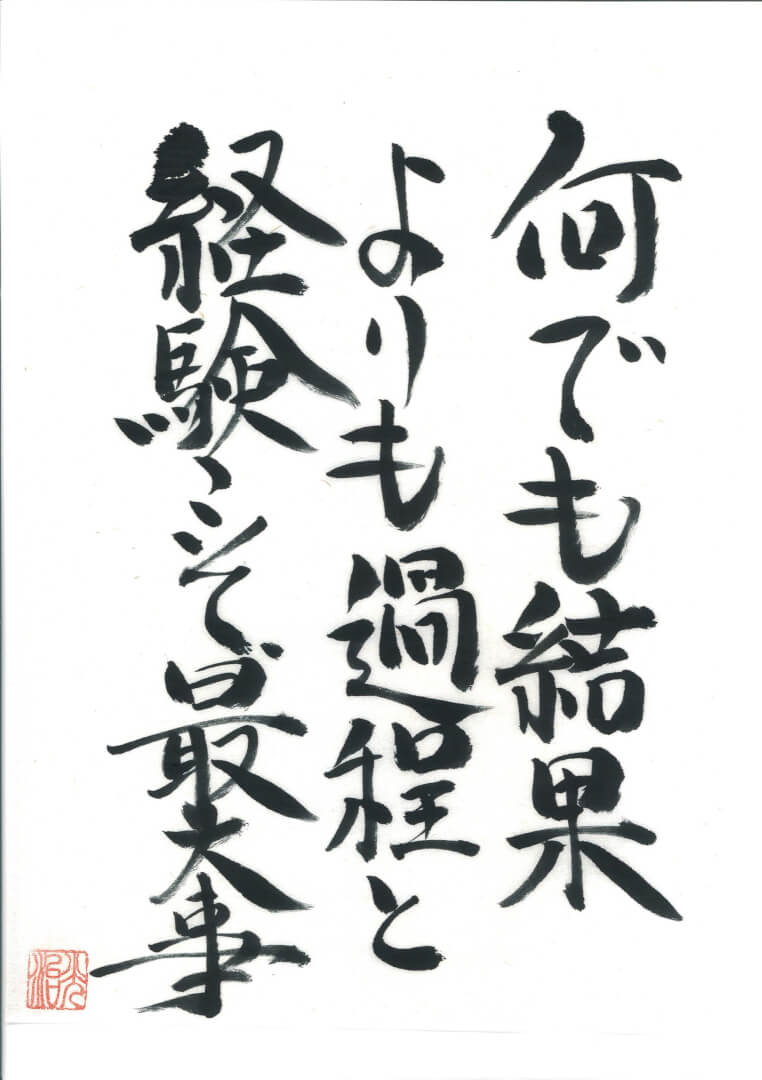 何でも結果
よりも過程と
経験こそ最大事